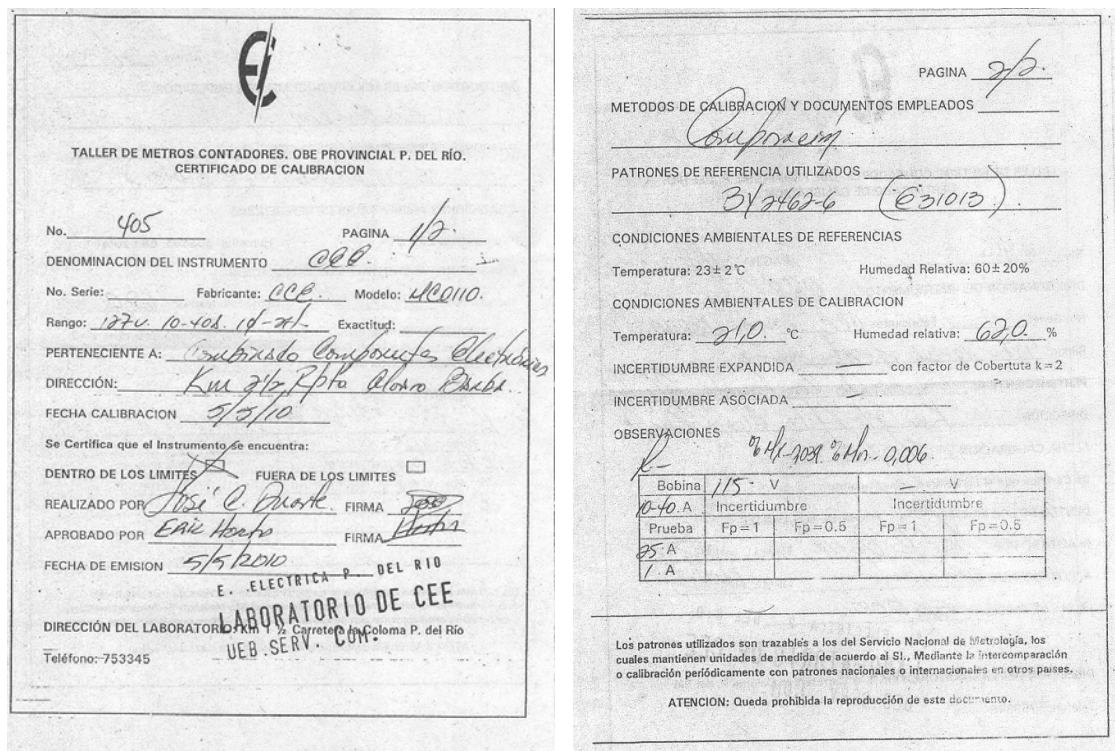 TALLER DE METROS CONTADORES. OBE PROVINCIAL P. DEL RÍO.
CERTIFICADO DE CALIBRACION
No. 405 PAGINA 1/2.
DENOMINACION DEL INSTRUMENTO CCE.
No. Serie: Fabricante: CCE. Modelo: MC0110.
Rango: 127v. 10-40A. 1Ø-2H- Exactitud:
PERTENECIENTE A: Combinado Componentes Electrónicos
DIRECCIÓN: Km 2½ Rpto
FECHA CALIBRACION 5/5/10
Se Certifica que el Instrumento se encuentra:
DENTRO DE LOS LIMITES FUERA DE LOS LIMITES
REALIZADO POR José C. Duarte. FIRMA
APROBADO POR ERIC FIRMA
FECHA DE EMISION 5/5/2010
E. ELECTRICA P. DEL RIO
LABORATORIO DE CEE
DIRECCIÓN DEL LABORATORIO: Km 1 ½ Carretera a Coloma P. del Río
UEB.SERV. COM.
Teléfono: 753345
PAGINA 2/2.
METODOS DE CALIBRACION Y DOCUMENTOS EMPLEADOS
Comparación
PATRONES DE REFERENCIA UTILIZADOS
3Y2462-6 (E31013)
CONDICIONES AMBIENTALES DE REFERENCIAS
Temperatura: 23± 2°C Humedad Relativa: 60± 20%
CONDICIONES AMBIENTALES DE CALIBRACION
Temperatura: 21,0. °C Humedad relativa: 62,0. %
INCERTIDUMBRE EXPANDIDA — con factor de Cobertuta k=2
INCERTIDUMBRE ASOCIADA —
OBSERVACIONES
0,006.
Bobina 115- V
10-40. A Incertidumbre Incertidumbre
Prueba Fp=1 Fp=0.5 Fp=1 Fp=0.5
25. A
1. A
Los patrones utilizados son trazables a los del Servicio Nacional de Metrología, los
cuales mantienen unidades de medida de acuerdo al SI., Mediante la intercomparación
o calibración periódicamente con patrones nacionales o internacionales en otros países.
ATENCION: Queda prohibida la reproducción de este documento.